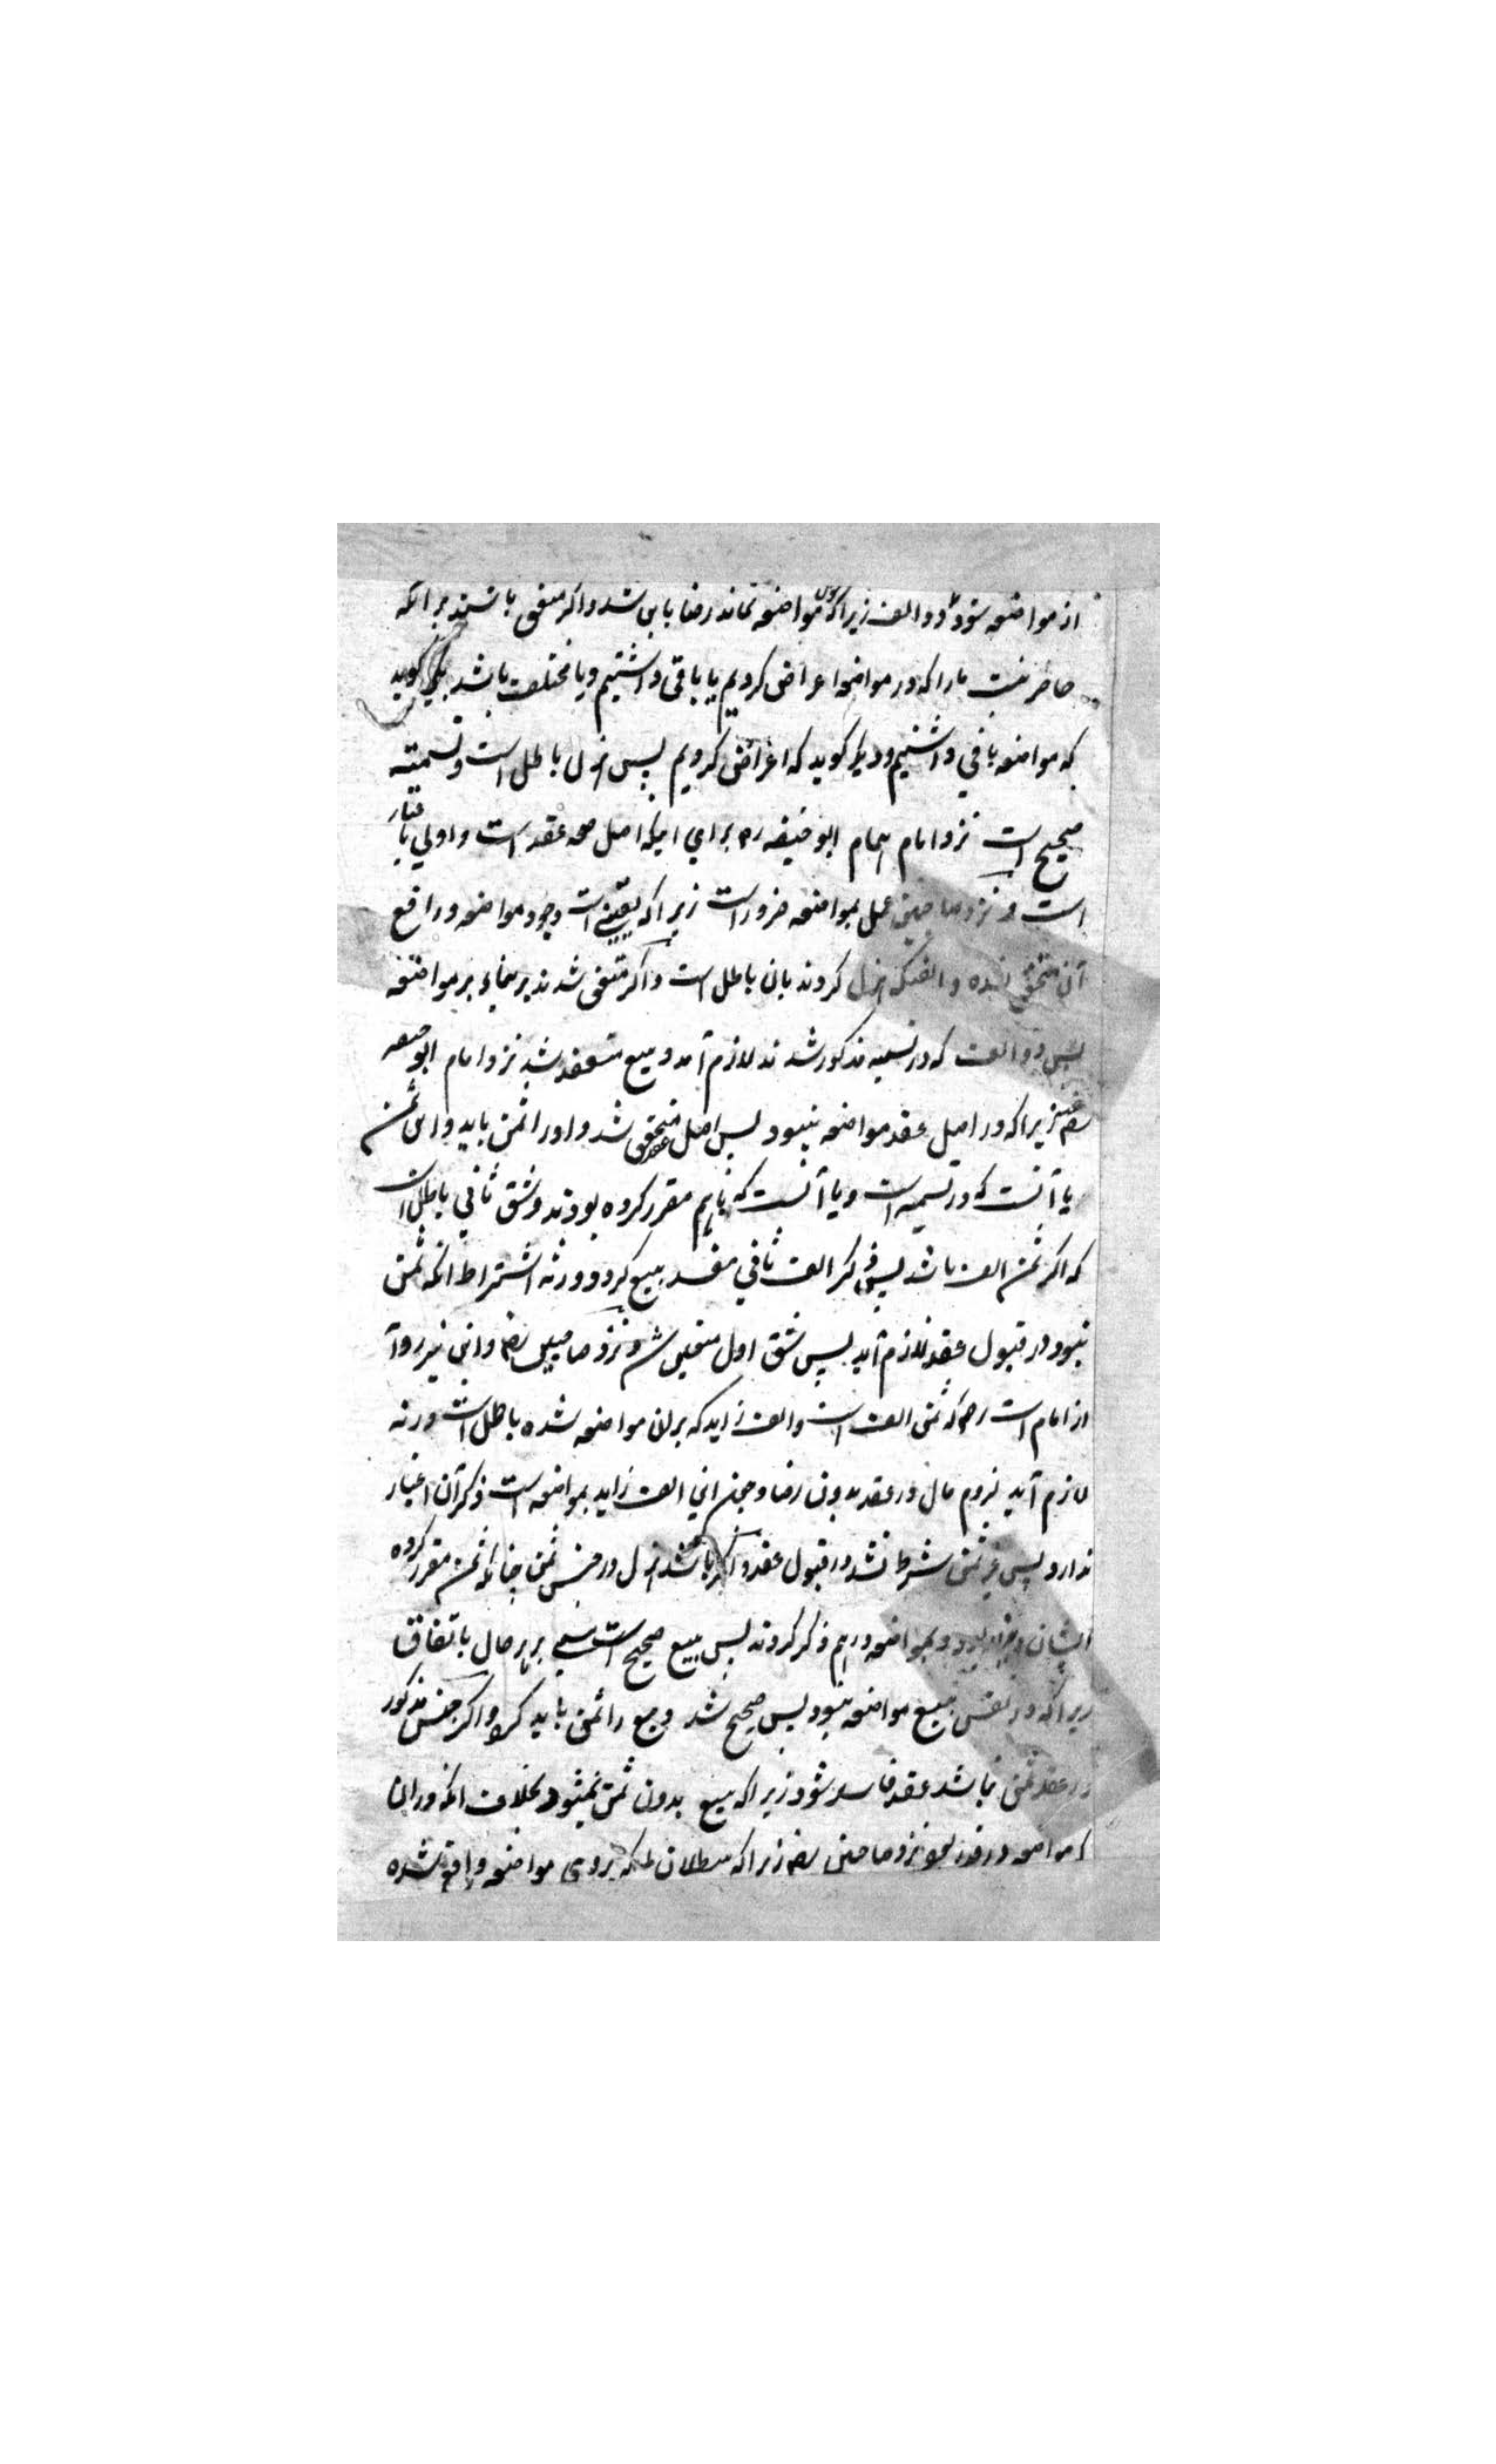 از مواضعه شود دو الف زیراکه چون مواضعه نماند رضا باین شد و اکر متفق باشند برانکه
حاضر نیست مارا که در مواضعه اعراض کردیم یا باقی داشتیم و یا مختلف باشد یکی کوید
که مواضعه باقي داشتیم و دیکر کوید که اعراض کردیم پس هزل باطل است و تسمیته
صحیح است نزد امام همام ابو حنیفه رح براي اینکه اصل صحه عقد است و اولي باعتبار
است و نزد صاحبین عمل بمواضعه ضرور است زیراکه یقیني است وجود مواضعه و رافع
آن متحقق نشده و الفیکه هزل کردند بان باطل است و اکر متفق شدند بر بناء بر مواضعه
پس دو الف که در تسمیه مذکور شدند لازم آمد و بیع منعقد شد نزد امام ابو حنیفه
رض زیراکه در اصل عقد مواضعه نبود پس اصل عقد متحقق شد و او را ثمن باید و این ثمن
یا آنست که در تسمیه است و یا آنست که باهم مقرر کرده بودند و شق ثاني باطل است
که اکر ثمن الف باشد پس ذکر الف ثاني مفسد بیع کردد ورنه اشتراط انکه ثمن
نبود در قبول عقد لازم آید پس شق اول متعین شد و نزد صاحبین رض و این نیز روایت
از امام است رح که ثمن الف است و الف زاید که بران مواضعه شده باطل است ورنه
لازم آید لزوم مال در عقد بدون رضا و چون این الف زاید بمواضعه است ذکر آن اعتبار
ندارد پس غیر ثمن شرط نشد در قبول عقد و اکر باشد هزل در جنس ثمن چنانکه ثمن مقرر کرده
ایشان دینار بود و بمواضعه درهم ذکر کردند پس بیع صحیح است بر هر حال باتفاق
زیراکه در نفس بیع مواضعه نبود پس صحیح شد و بیع را ثمن باید کر و اکر جنس مذکور
در عقد ثمن نباشد عقد فاسد شود زیراکه بیع بدون ثمن نمیشود بخلاف انکه دران
که مواضعه در قدر بود نزد صاحبین رض زیراکه بطلان بروی مواضعه واقع شده